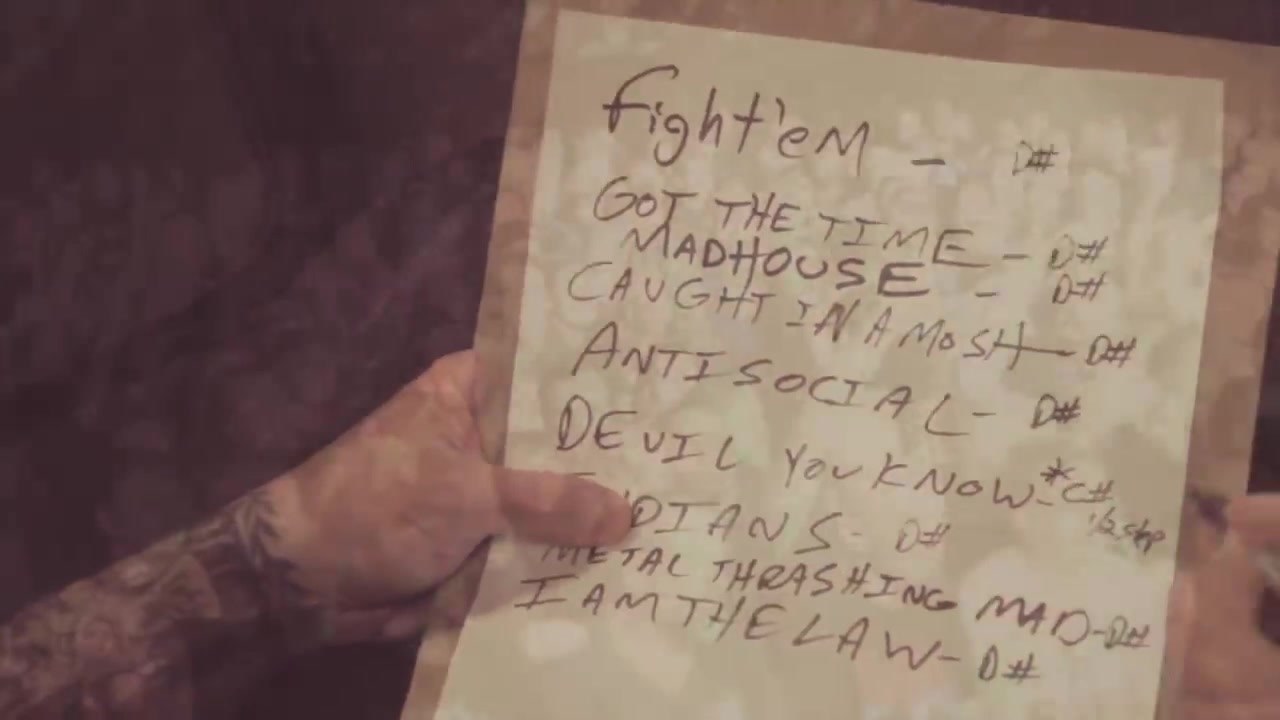 fight'em - D#
GOT THE TIME - D#
MADHOUSE - D#
CAUGHT IN A MOSH - D#
ANTISOCIAL - D#
DEVIL YOU KNOW - *C#
1/2 step
DIANS - D#
METAL THRASHING MAD - D#
I AM THE LAW - D#